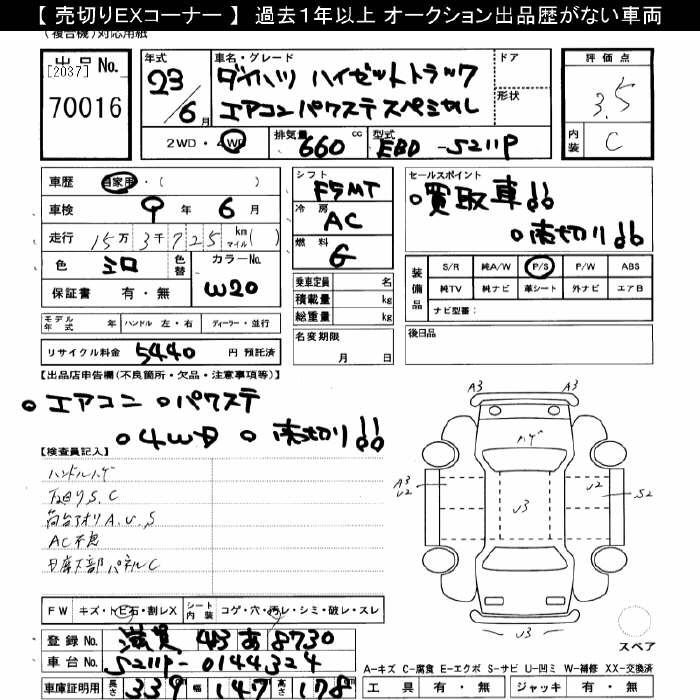 【 売切りEXコーナー 】 過去1年以上 オークション出品歴がない車両
(複合機)対応用紙
出品No.
[2037]
70016
年式
23/6月
車名・グレード
ダイハツ ハイゼットトラック
エアコンパワステスペシャル
ドア
形状
2WD・4WD
排気量 660 cc
型式 EBD-S211P
評価点
3.5
内装 C
車歴 自家用・( )
車検 9年 6月
走行 15万3千725 km マイル( )
色 シロ 色替
カラーNo. W20
保証書 有・無
シフト F5MT
冷房 AC
燃料 G
乗車定員 名
積載量 kg
総重量 kg
セールスポイント
○買取車!!
○売切り!!
装備品
S/R 純A/W P/S P/W ABS
純TV 純ナビ 革シート 外ナビ エアB
ナビ型番:
モデル年式 年 ハンドル 左・右 ディーラー・並行
リサイクル料金 5440 円 預託済
名変期限 月 日
後日品
【出品店申告欄(不良箇所・欠品・注意事項等)】
○エアコン ○パワステ
○4WD ○売切り!!
【検査員記入】
ハンドルハゲ
下回りS.C
荷台アオリA.U.S
AC不良
FW キズ・飛石・割レX
シート内装 コゲ・穴・汚レ・シミ・破レ・スレ
登録No. 滋賀 483 あ 8730
車台No. S211P-0144324
車庫証明用 長さ 339 幅 147 高さ 178
A3 A3
ハゲ
A3
U2
U2
S2
U3
U3
スペア
A-キズ C-腐食 E-エクボ S-サビ U-凹ミ W-補修 XX-交換済
工具 有・無 ジャッキ 有・無